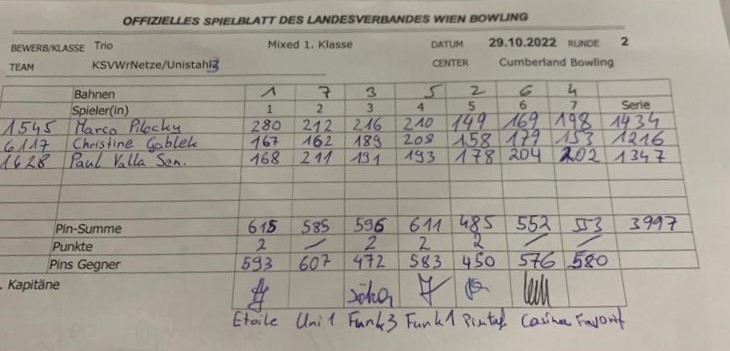 OFFIZIELLES SPIELBLATT DES LANDESVERBANDES WIEN BOWLING
BEWERB/KLASSE Trio Mixed 1. Klasse DATUM 29.10.2022 RUNDE 2
TEAM KSVWrNetze/Unistahl3 CENTER Cumberland Bowling
Bahnen 1 7 3 5 2 6 4
Spieler(in) 1 2 3 4 5 6 7 Serie
1545 Marco Pilecky 280 212 216 210 149 169 198 1434
6117 Christine Gablek 167 162 189 208 158 179 153 1216
1628 Paul Valla Sen. 168 211 191 193 178 204 202 1347
Pin-Summe 615 585 596 611 485 552 553 3997
Punkte 2 / 2 2 2 / /
Pins Gegner 593 607 472 583 450 576 580
. Kapitäne
Etoile Uni 1 Funk3 Funk1 Casina Favorit